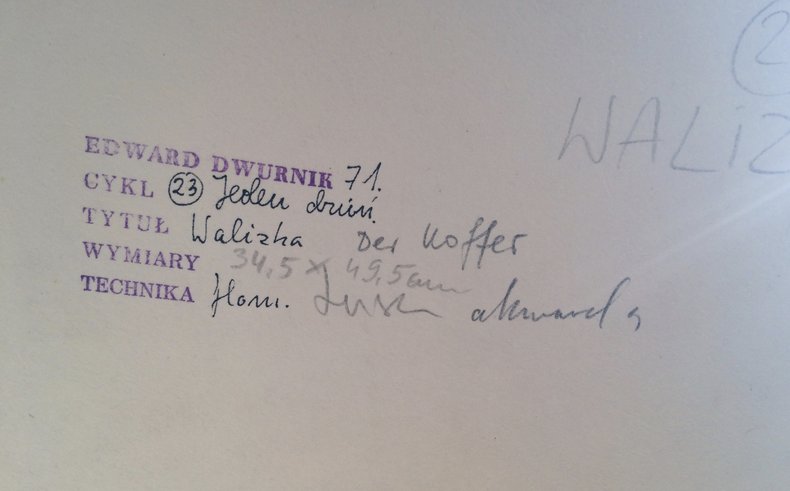 2
WALIZ
EDWARD DWURNIK 71.
CYKL 23 Jeden dzień.
TYTUŁ Walizka Der Koffer
WYMIARY 34,5 x 49,5 cm
TECHNIKA tusz akwarela